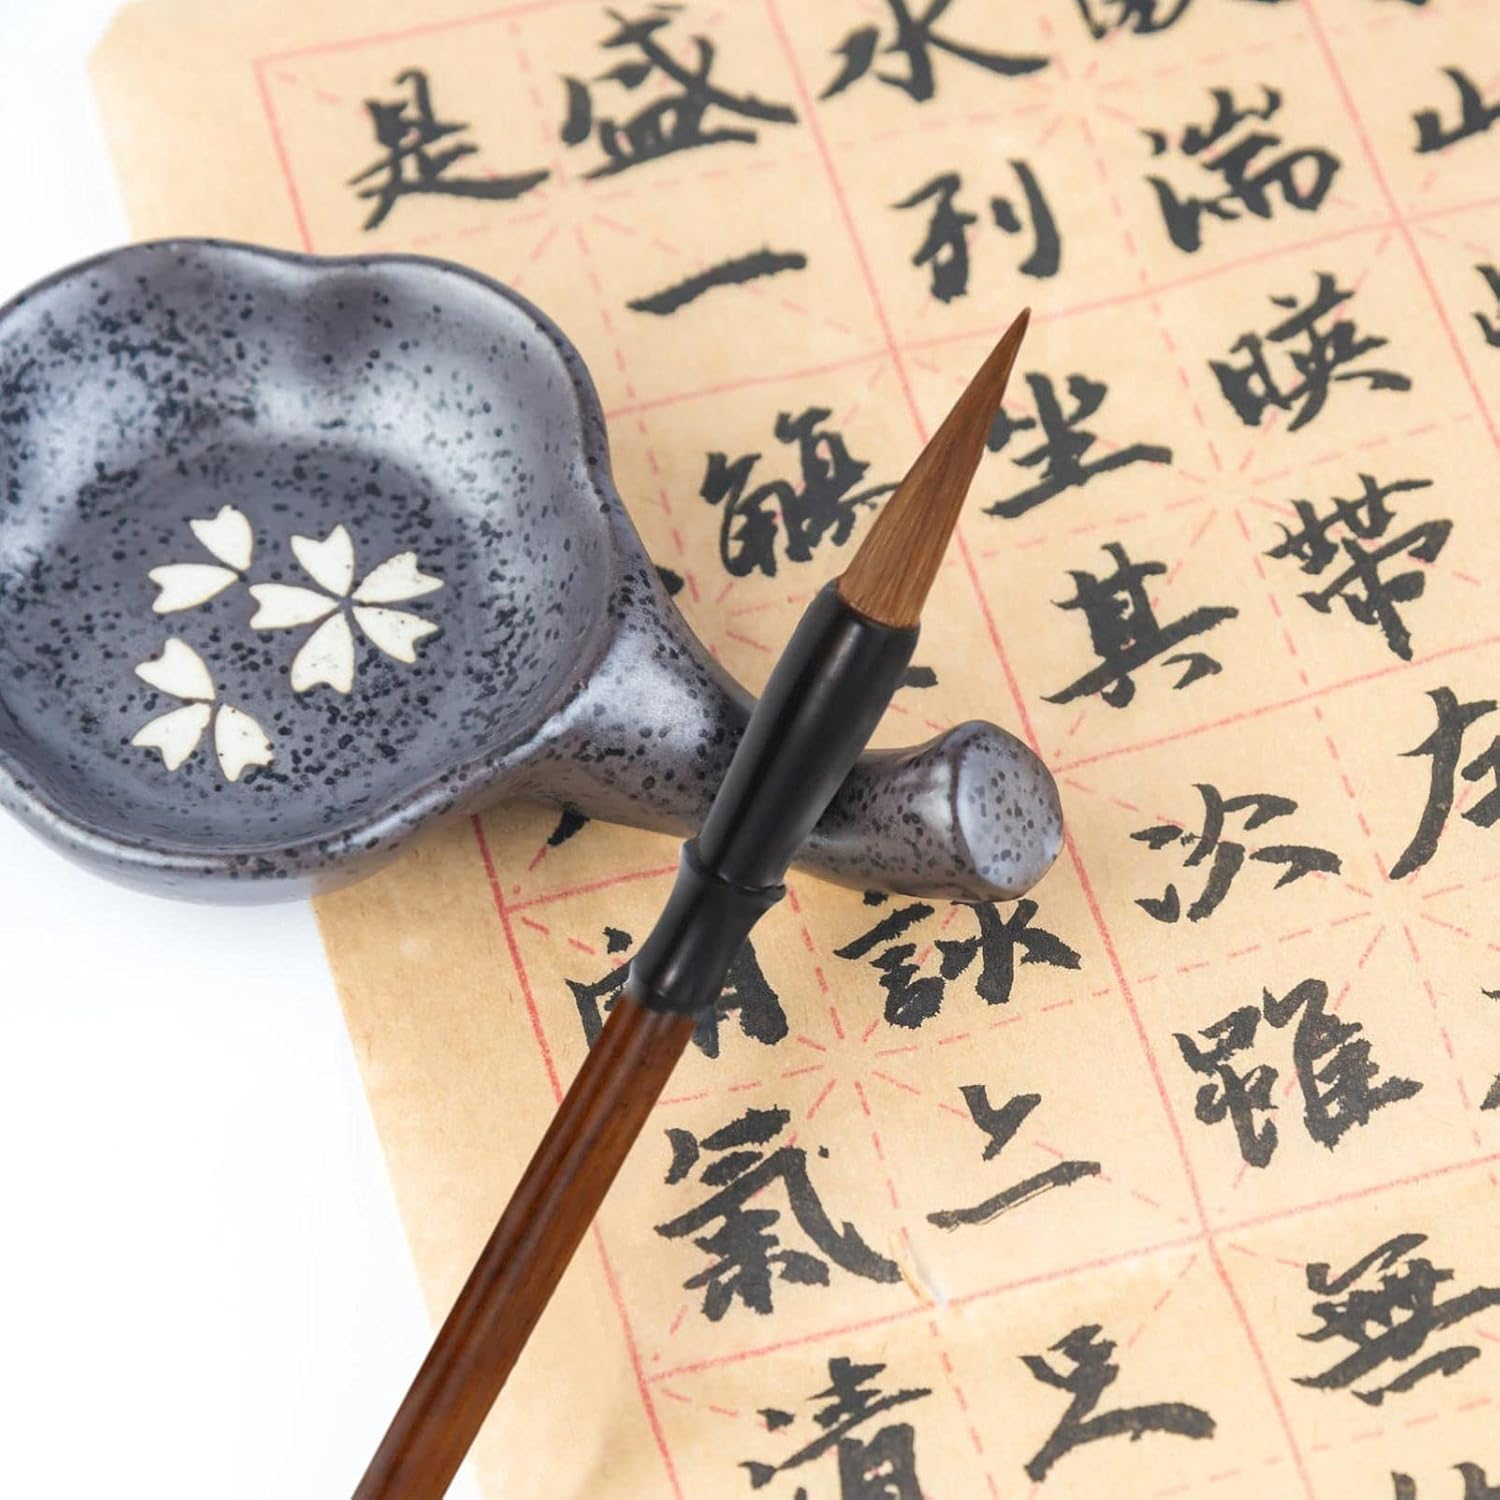 山
湍暎帶
水列坐其次雖無
盛一觴詠上足
是氣清